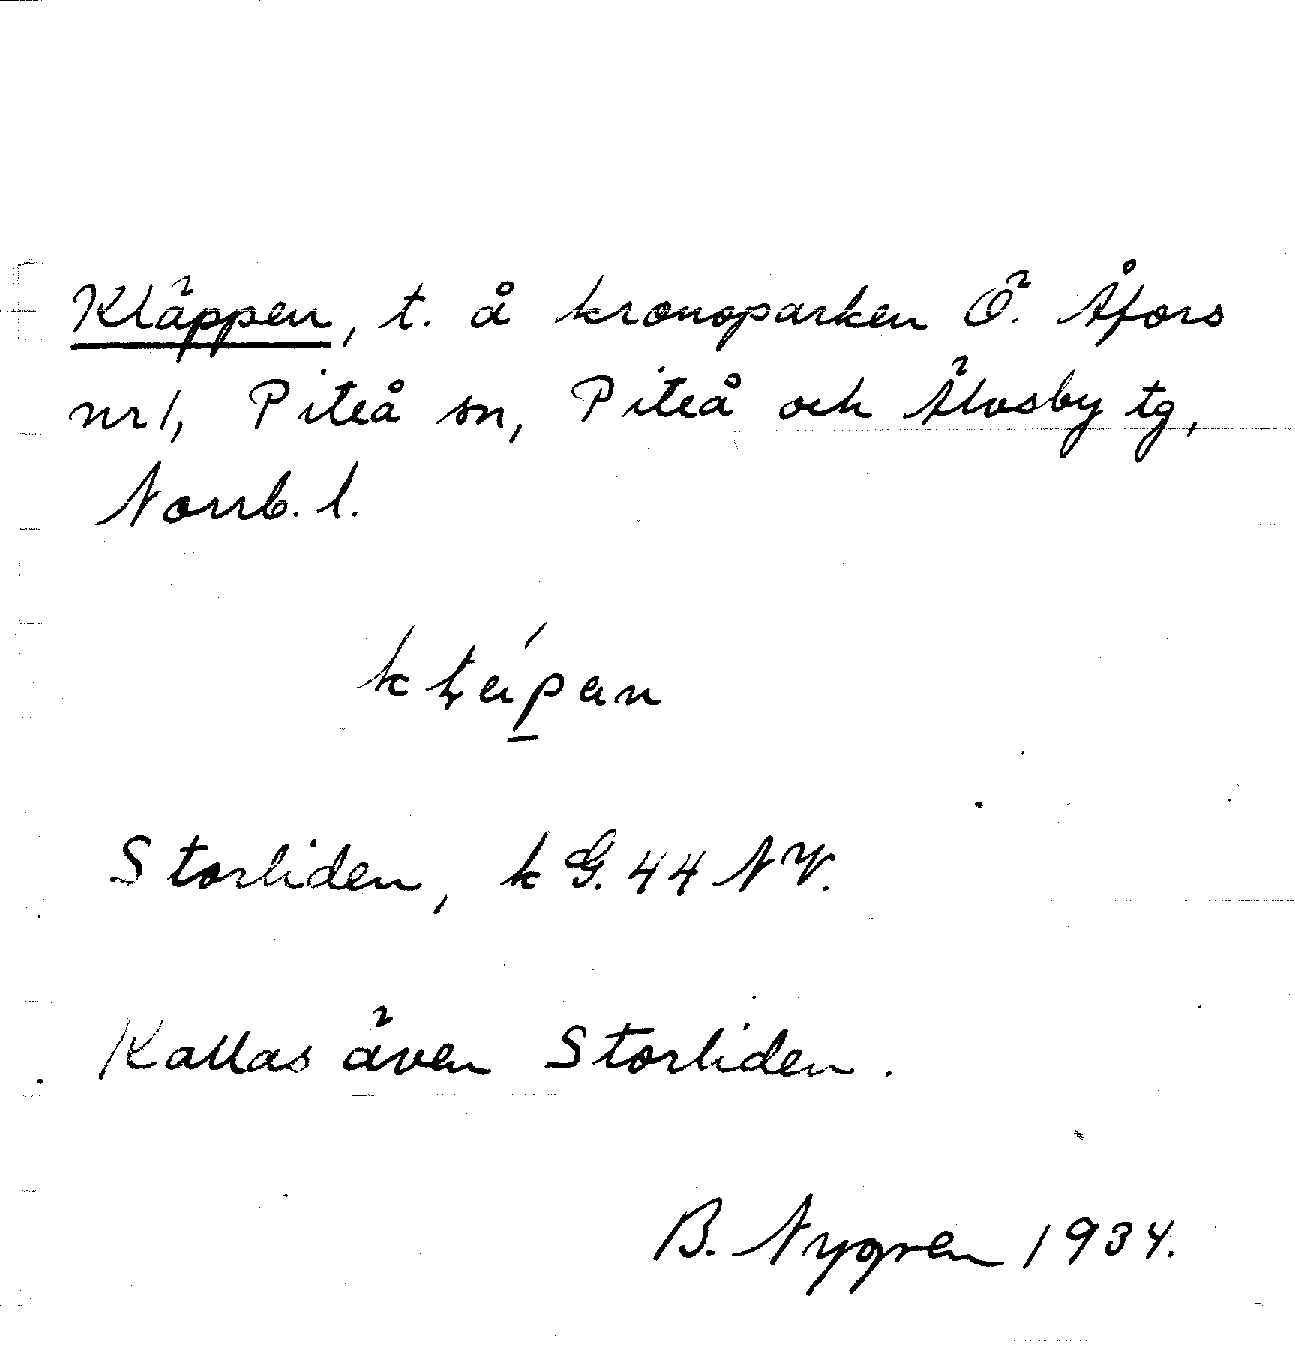 Kläppen, t. å kronoparken Ö. Åfors
nr 1, Piteå sn, Piteå och Älvsby tg,
Norrb. l.
Storliden, kG. 44 NV.
Kallas även Storliden.
B. Nygren 1934.